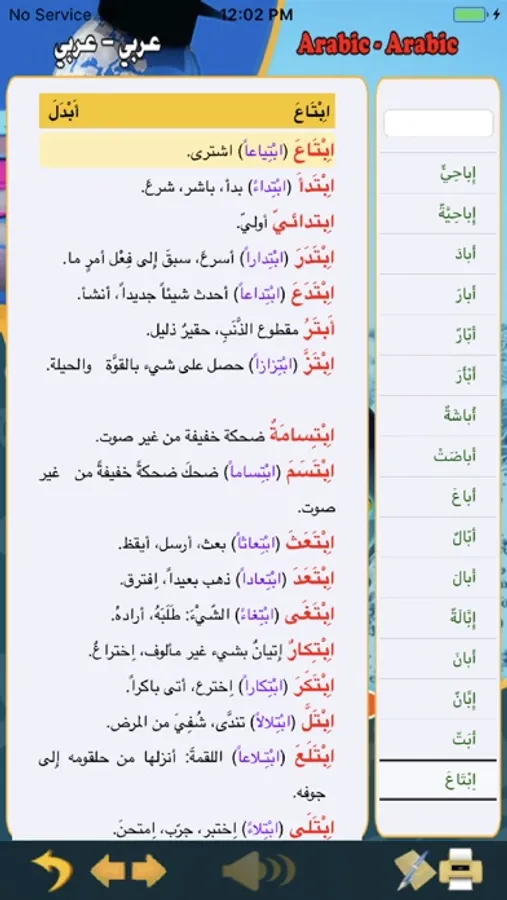 No Service 12:02 PM
عربي - عربي Arabic - Arabic
اِبْتَاعَ أَبْدَلَ
اِبْتَاعَ (ابْتِياعاً) اشترى.
اِبْتَدأَ (ابْتِداءً) بدأ، باشر، شرعَ.
اِبتدائيّ أوليّ.
اِبْتَدَرَ (ابْتِداراً) أسرعَ، سبقَ إلى فِعْل أمرٍ ما.
اِبْتَدَعَ (ابْتِداعاً) أحدث شيئاً جديداً، أنشأ.
أَبتَرُ مقطوع الذَّنَبِ، حقيرٌ ذليل.
اِبْتَزَّ (ابْتِزازاً) حصل على شيء بالقوَّة والحيلة.
اِبْتِسامَةُ ضحكة خفيفة من غير صوت.
اِبْتَسَمَ (ابْتِساماً) ضحكَ ضحكةً خفيفةً من غير
صوت.
اِبْتَعَثَ (ابْتِعاثاً) بعث، أرسل، أيقظ.
اِبْتَعَدَ (ابْتِعاداً) ذهب بعيداً، اِفترق.
اِبْتَغَى (ابْتِغاءً) الشّيْءَ: طَلَبَهُ، أرادهُ.
اِبْتِكارٌ إتيانٌ بشيء غير مألوف، اِختراعٌ.
اِبْتَكَرَ (ابْتِكاراً) اِخترع، أتى باكراً.
اِبْتَلَّ (ابْتِلالاً) تندَّى، شُفِيَ من المرض.
اِبْتَلَعَ (ابْتِلاعاً) اللقمةَ: أنزلها من حلقومه إلى
جوفه.
اِبْتَلَى (ابْتِلاءً) اِختبر، جرّب، اِمتحنَ.
إباحِيٌّ
إباحِيَّةٌ
أبادَ
أبارَ
أبّارٌ
أبْأَرَ
أباشَةٌ
أباضَتْ
أباغَ
أبّالٌ
أبالَ
إبَّالَةٌ
أبانَ
إبَّانٌ
أبَتّ
اِبْتَاعَ